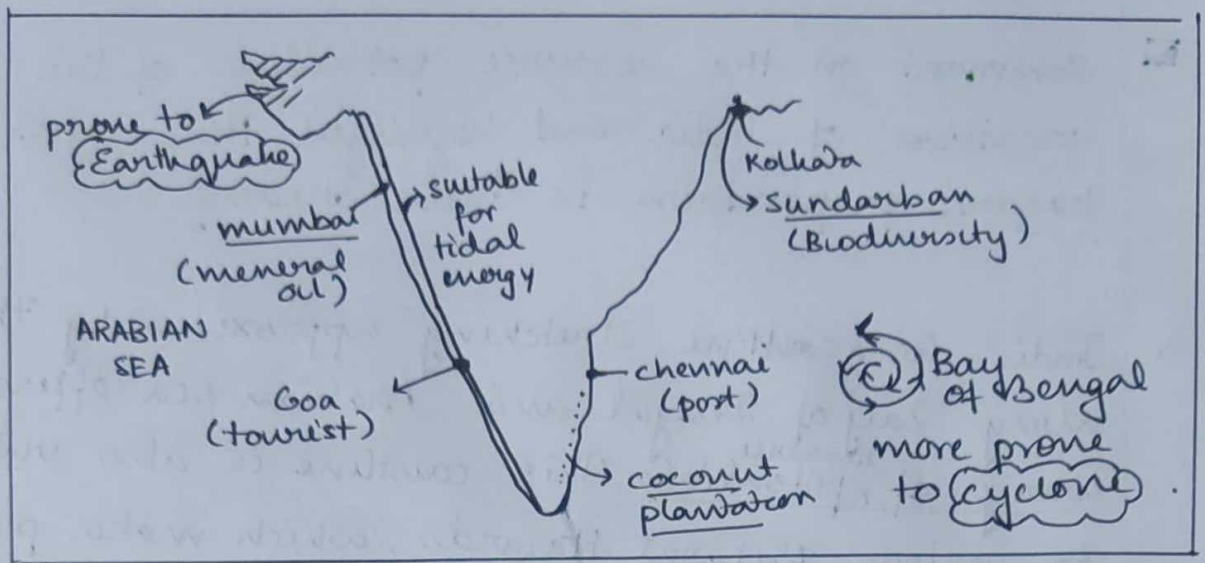 prone to
Earthquake
mumbai
(meneral
oil)
suitable
for
tidal
energy
ARABIAN
SEA
Goa
(tourist)
Kolkata
Sundarban
(Biodiversity)
chennai
(port)
coconut
plantation
Bay
of Bengal
more prone
to cyclone.